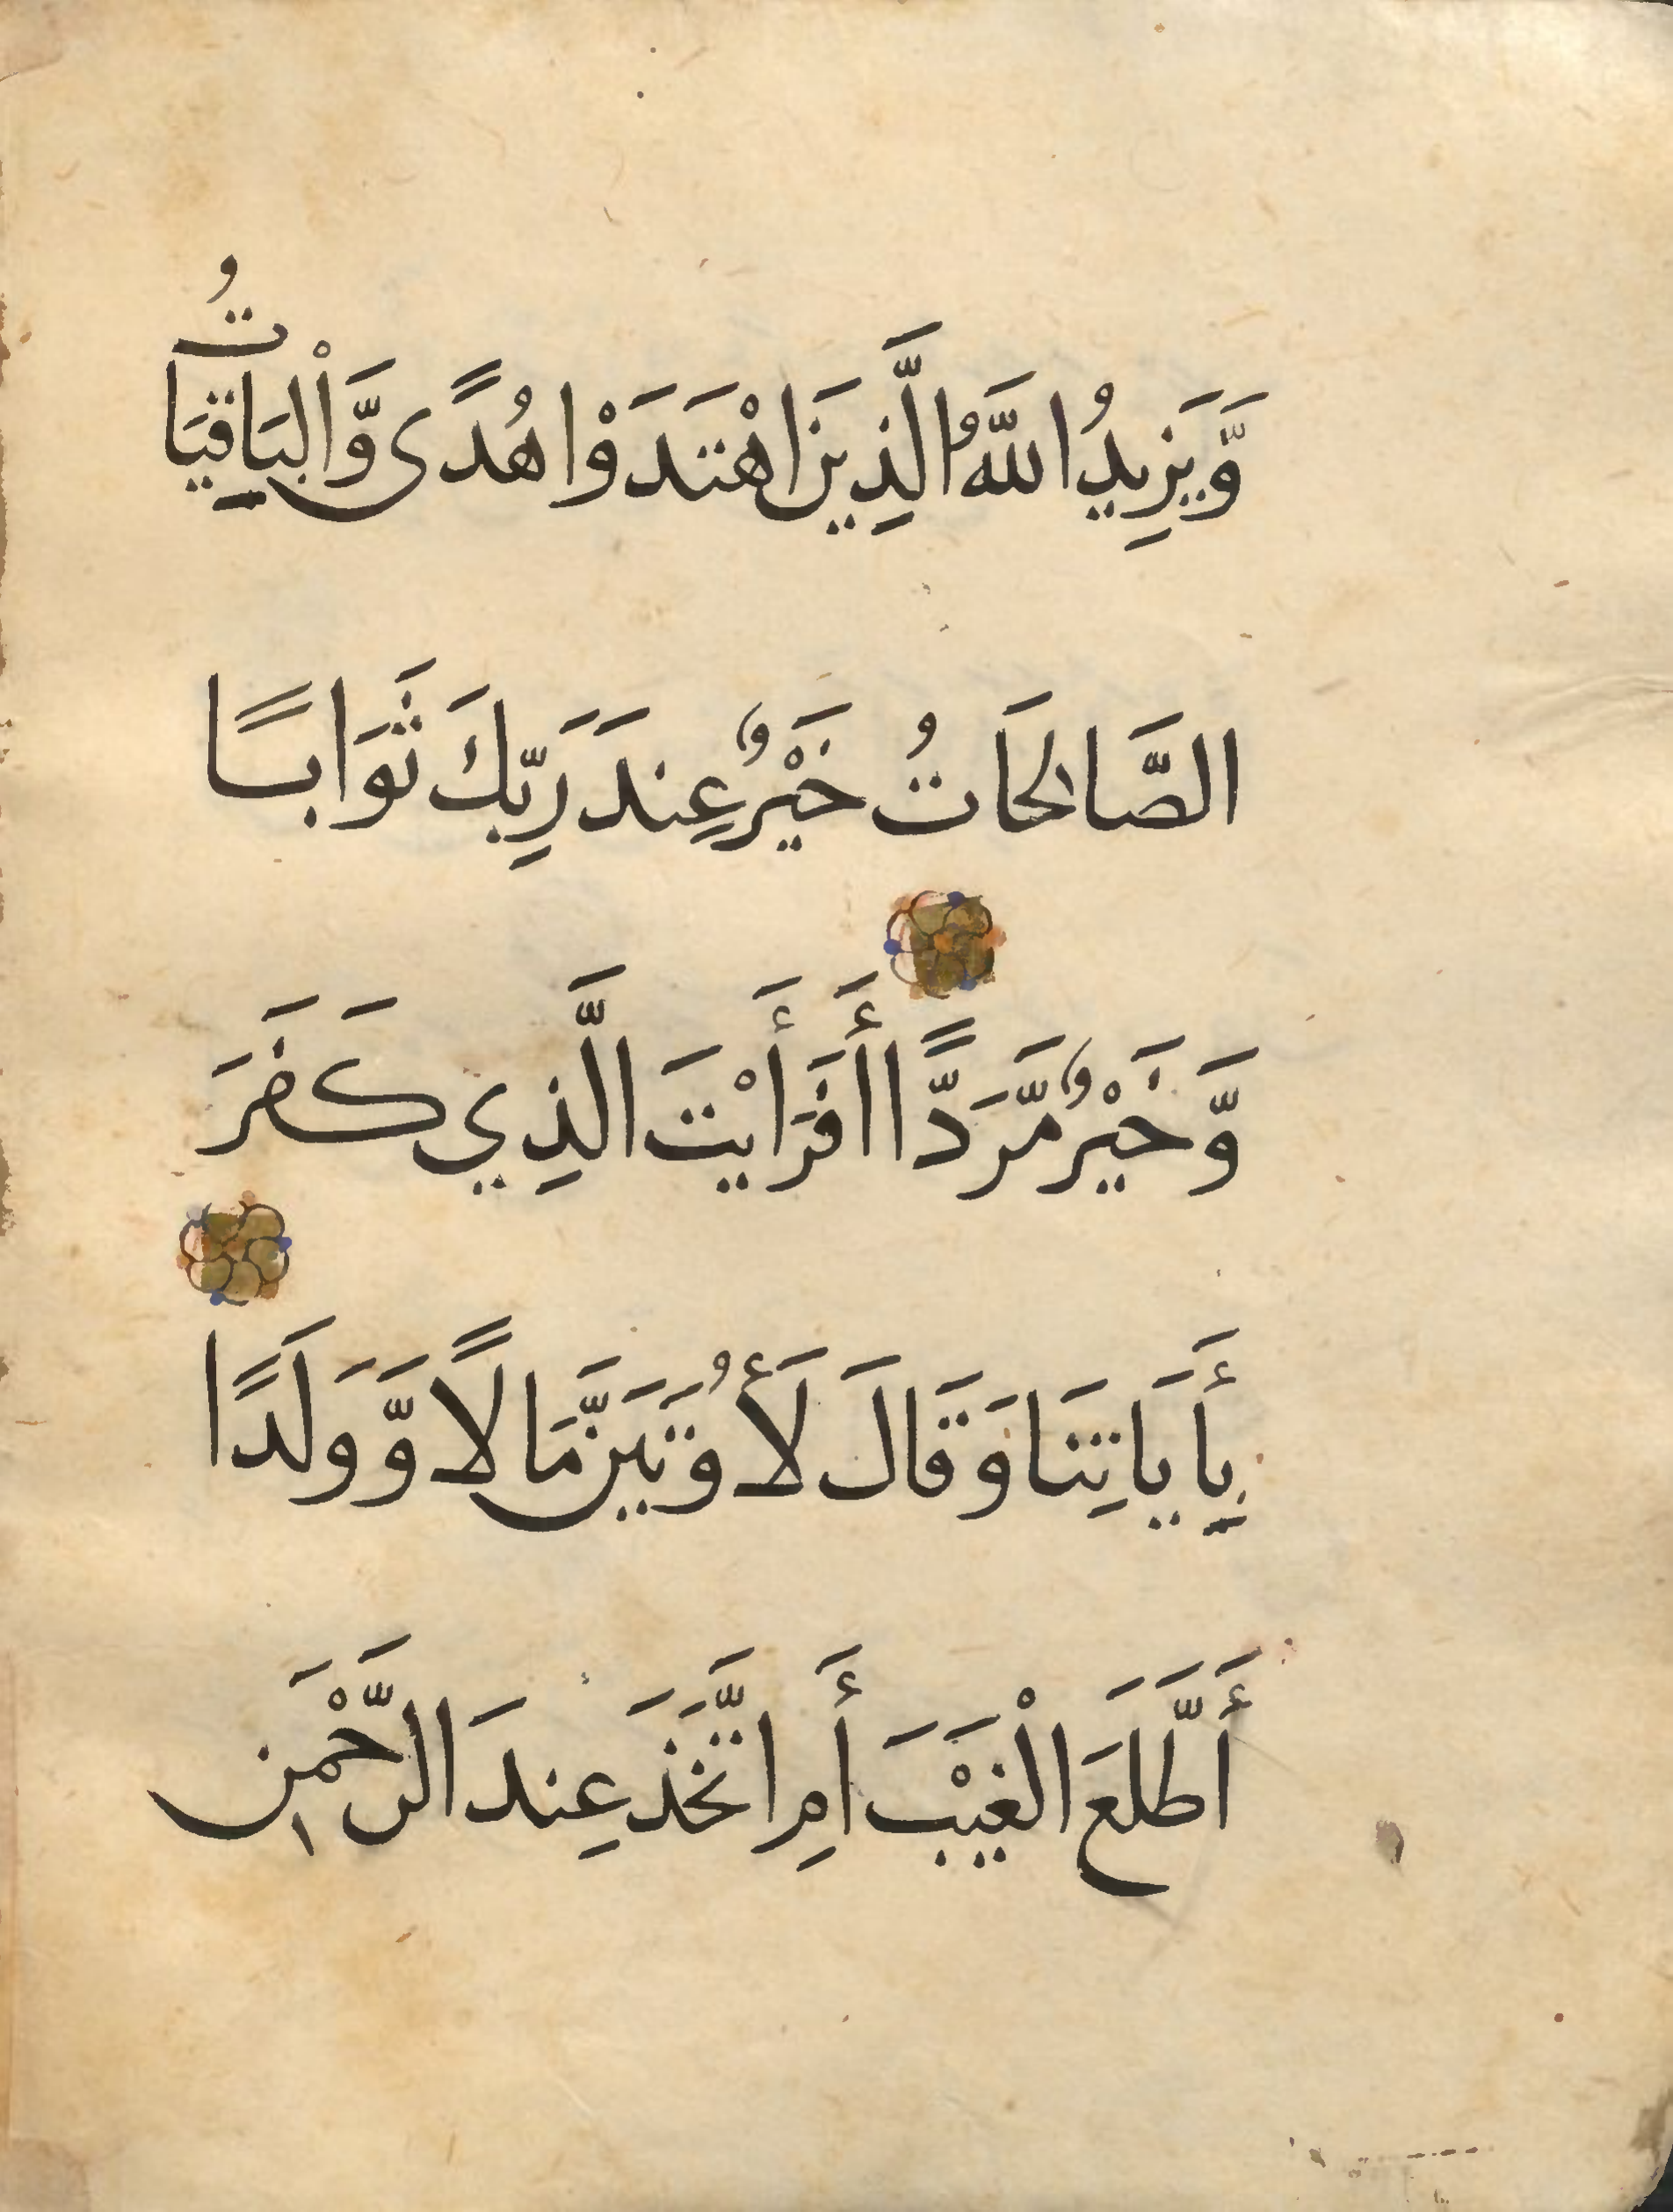 وَّيَزِيدُ اللَّهُ الَّذِينَ اهْتَدَوْا هُدًى وَّالْبَاقِيَاتُ
الصَّالِحَاتُ خَيْرٌ عِندَ رَبِّكَ ثَوَابًا
وَّخَيْرٌ مَّرَدًّا أَفَرَأَيْتَ الَّذِي كَفَرَ
بِأَيَاتِنَا وَقَالَ لَأُوتَيَنَّ مَالًا وَّوَلَدًا
أَطَّلَعَ الْغَيْبَ أَمِ اتَّخَذَ عِندَ الرَّحْمَنِ